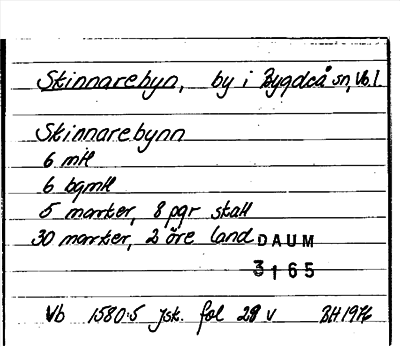 Skinnarebyn, by i Bygdeå sn, Vb. l.
Skinnarebynn
6 mtl
6 bgmtl
5 marker, 8 pgr skatt
30 marker, 2 öre land
DAUM
3165
Vb 1580:5 Jsk. fol 29 v BH 1976